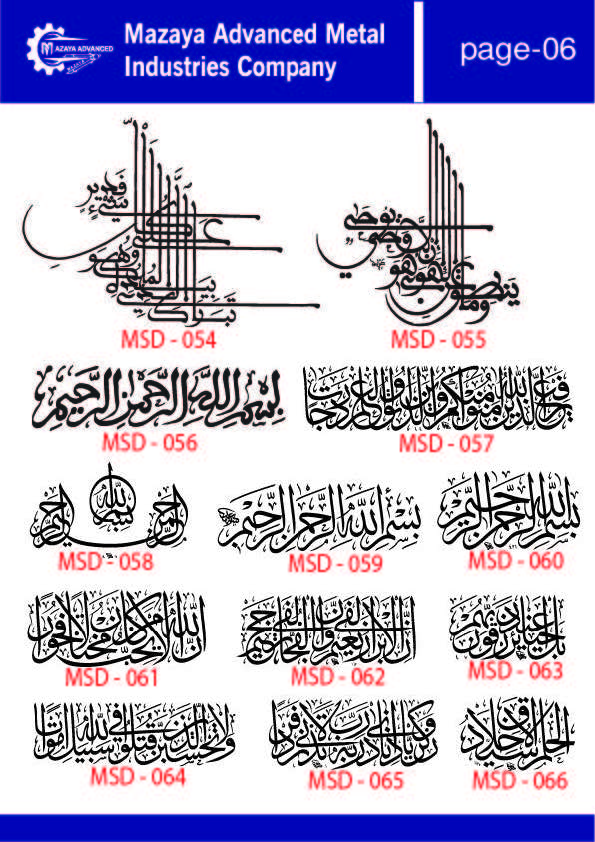 MAZAYA ADVANCED
Mazaya Advanced Metal
Industries Company
page-06
تبارك الذي بيده الملك وهو على كل شيء قدير
MSD - 054
وما ينطق عن الهوى إن هو إلا وحي يوحى
MSD - 055
بسم الله الرحمن الرحيم
MSD - 056
يرفع الله الذين آمنوا منكم والذين أوتوا العلم درجات
MSD - 057
بسم الله الرحمن الرحيم
MSD - 058
بسم الله الرحمن الرحيم
MSD - 059
بسم الله الرحمن الرحيم
MSD - 060
إن الله لا يحب من كان مختالا فخورا
MSD - 061
إن الأبرار لفي نعيم وإن الفجار لفي جحيم
MSD - 062
بل أحياء عند ربهم يرزقون
MSD - 063
ولا تحسبن الذين قتلوا في سبيل الله أمواتا
MSD - 064
وزكريا إذ نادى ربه رب لا تذرني فردا
MSD - 065
الحلم سيد الأخلاق
MSD - 066